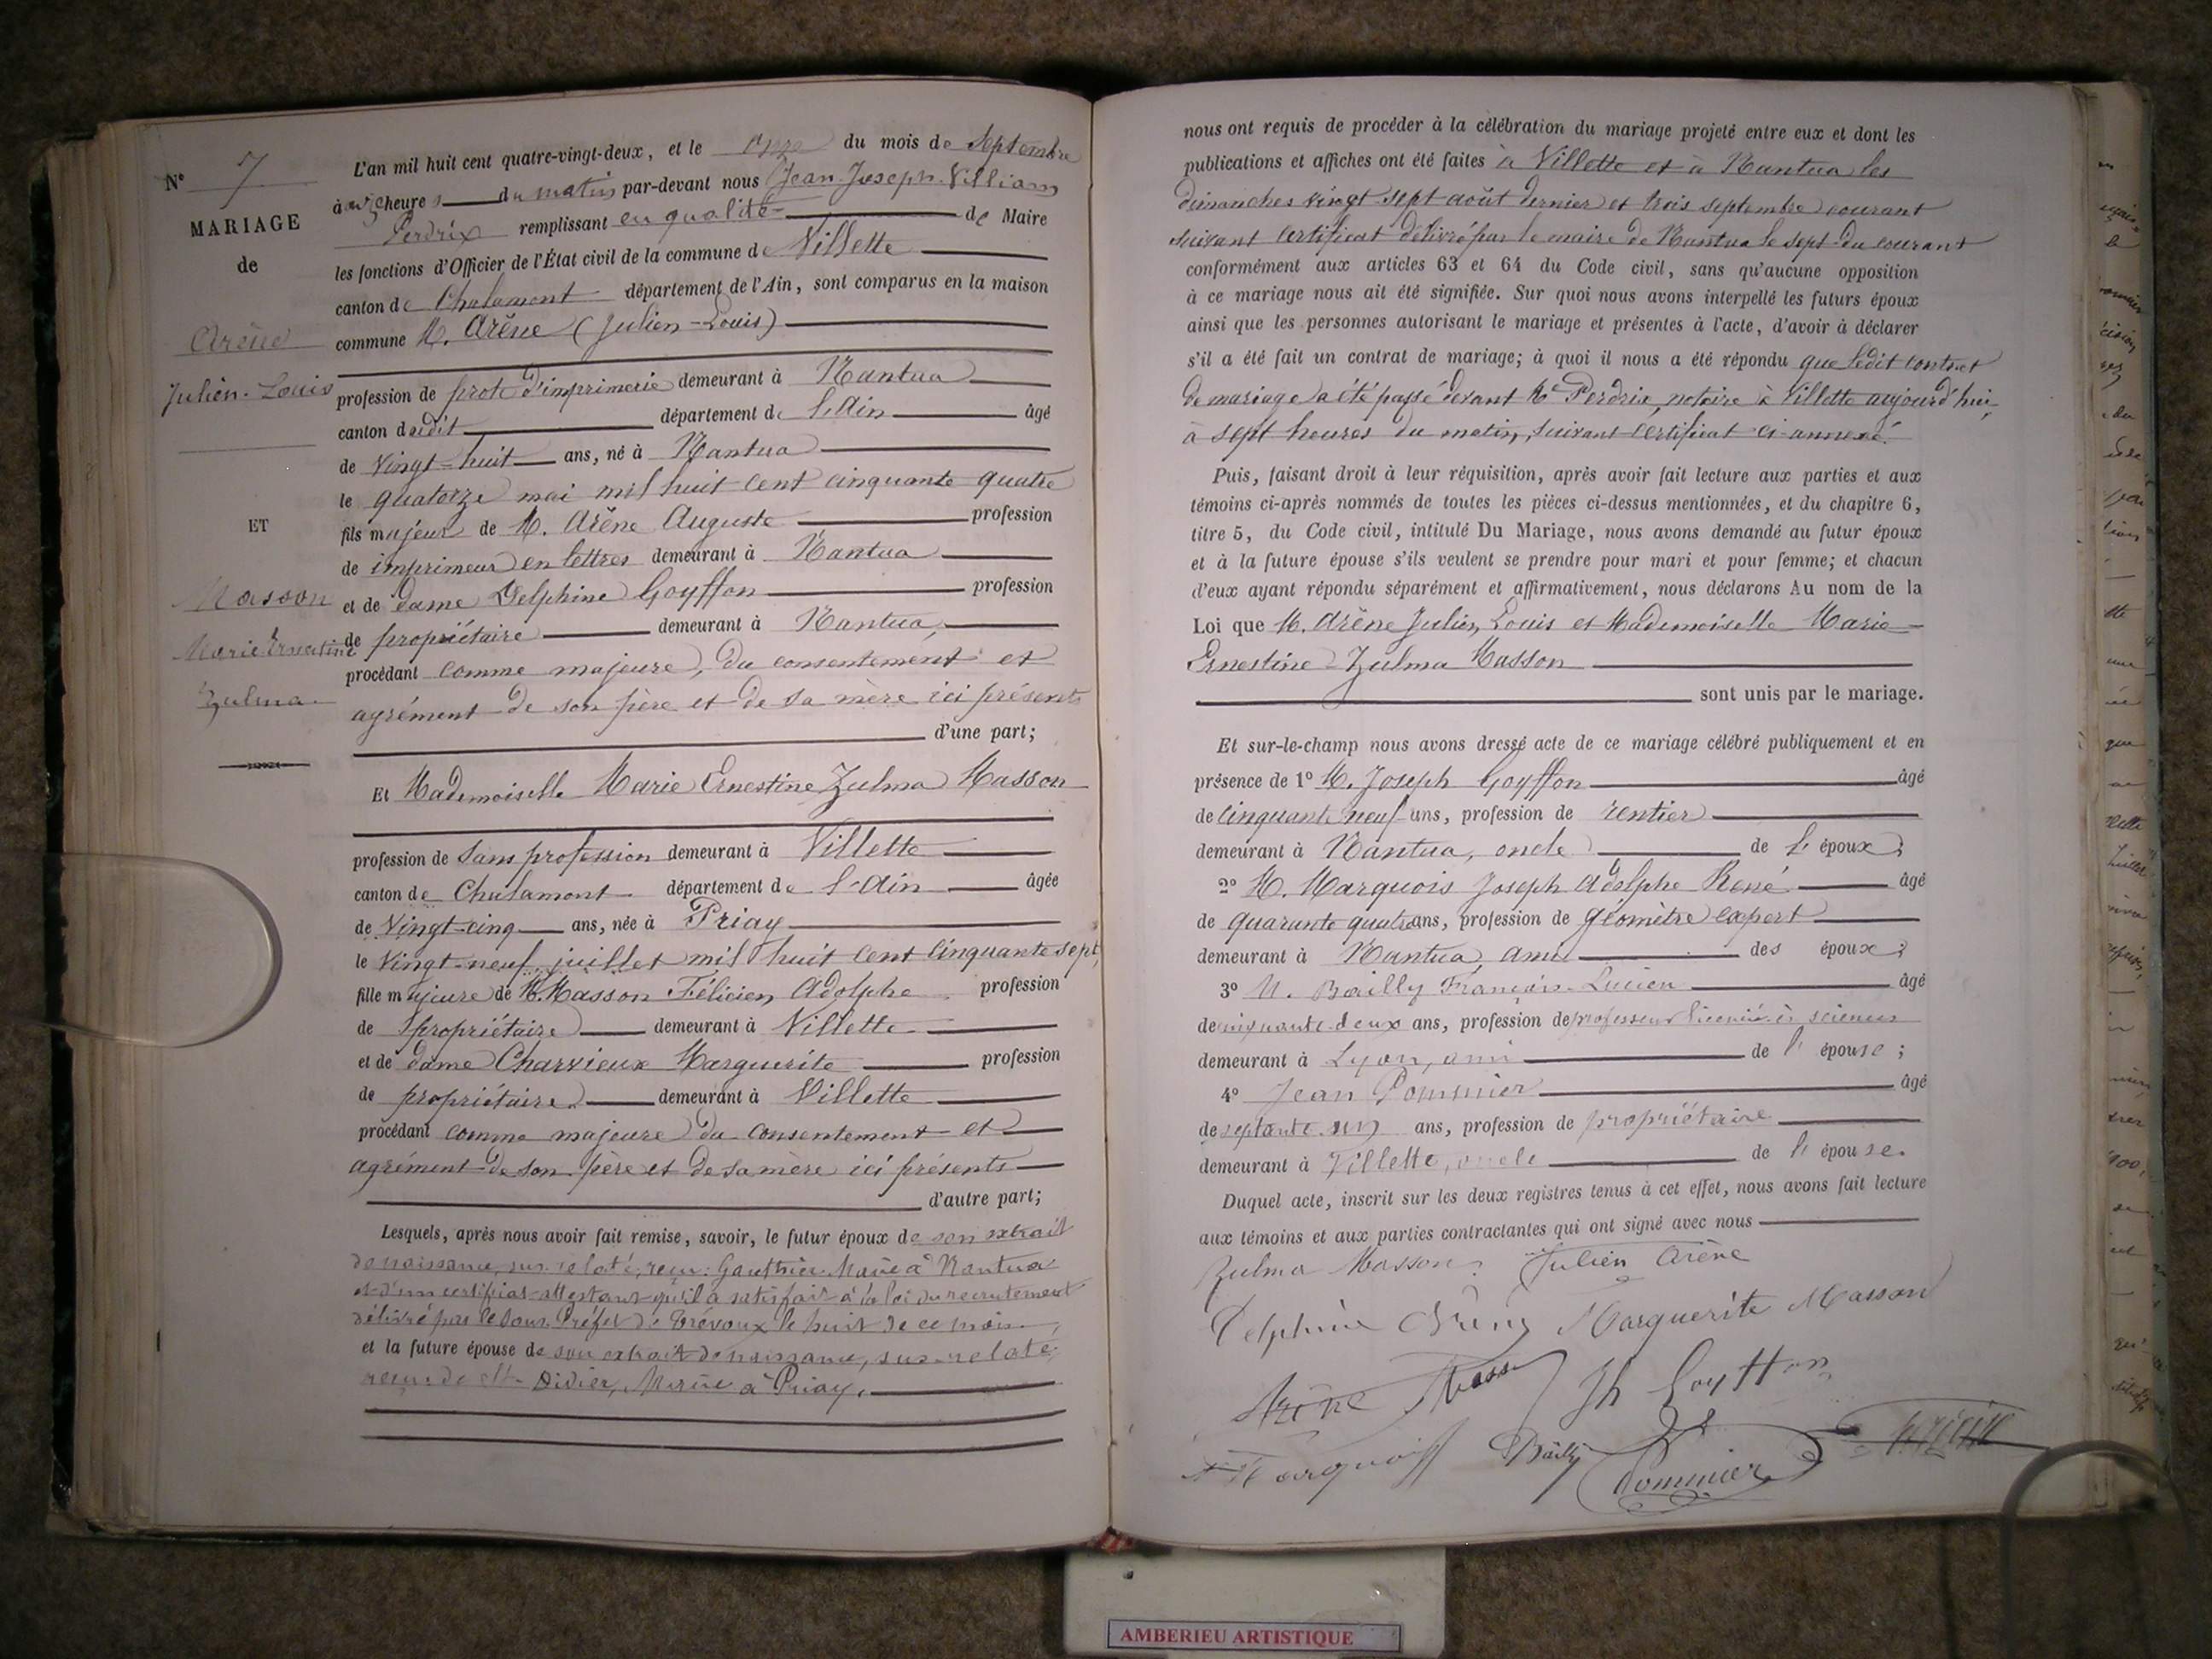 N° 7
MARIAGE
de
Arène
Julien-Louis
ET
Masson
Marie Ernestine
Zulma
L'an mil huit cent quatre-vingt-deux, et le onze du mois de Septembre
à dix heures du matin par-devant nous Jean Joseph William
Perdrix remplissant en qualité de Maire
les fonctions d'Officier de l'État civil de la commune de Villette
canton de Chalamont département de l'Ain, sont comparus en la maison
commune M. Arène (Julien-Louis)
profession de prote d'imprimerie demeurant à Nantua
canton dudit département de l'Ain âgé
de vingt-huit ans, né à Nantua
le quatorze mai mil huit cent cinquante quatre
fils majeur de M. Arène Auguste profession
de imprimeur en lettres demeurant à Nantua
et de dame Delphine Goyffon profession
de propriétaire demeurant à Nantua,
procédant comme majeure, du consentement et
agrément de son père et de sa mère ici présents
d'une part;
Et Mademoiselle Marie Ernestine Zulma Masson
profession de Sans profession demeurant à Villette
canton de Chalamont département de l'Ain âgée
de Vingt-cinq ans, née à Priay
le Vingt-neuf juillet mil huit cent cinquante sept,
fille majeure de M. Masson Félicien Adolphe profession
de propriétaire demeurant à Villette
et de dame Charvieux Marguerite profession
de propriétaire demeurant à Villette
procédant comme majeure du consentement et
agrément de son père et de sa mère ici présents
d'autre part;
Lesquels, après nous avoir fait remise, savoir, le futur époux de son extrait
de naissance, sus-relaté, reçu: Gauthier Maire à Nantua
et d'un certificat attestant qu'il a satisfait à la loi du recrutement
délivré par le Sous Préfet de Trévoux le huit de ce mois,
et la future épouse de son extrait de naissance, sus-relaté
reçu de St Didier, Maire à Priay.
nous ont requis de procéder à la célébration du mariage projeté entre eux et dont les
publications et affiches ont été faites à Villette et à Nantua les
dimanches vingt sept août dernier et trois septembre courant
suivant certificat délivré par le maire de Nantua le sept du courant
conformément aux articles 63 et 64 du Code civil, sans qu'aucune opposition
à ce mariage nous ait été signifiée. Sur quoi nous avons interpellé les futurs époux
ainsi que les personnes autorisant le mariage et présentes à l'acte, d'avoir à déclarer
s'il a été fait un contrat de mariage; à quoi il nous a été répondu que ledit contrat
de mariage a été passé devant Me Perdrix, notaire à Villette aujourd'hui,
à sept heures du matin, suivant certificat ci-annexé.
Puis, faisant droit à leur réquisition, après avoir fait lecture aux parties et aux
témoins ci-après nommés de toutes les pièces ci-dessus mentionnées, et du chapitre 6,
titre 5, du Code civil, intitulé Du Mariage, nous avons demandé au futur époux
et à la future épouse s'ils veulent se prendre pour mari et pour femme; et chacun
d'eux ayant répondu séparément et affirmativement, nous déclarons Au nom de la
Loi que M. Arène Julien Louis et Mademoiselle Marie
Ernestine Zulma Masson
sont unis par le mariage.
Et sur-le-champ nous avons dressé acte de ce mariage célébré publiquement et en
présence de 1° M. Joseph Goyffon âgé
de cinquante neuf ans, profession de rentier
demeurant à Nantua, oncle de l'époux;
2° M. Marquois Joseph Adolphe René âgé
de quarante quatre ans, profession de géomètre expert
demeurant à Nantua, ami des époux;
3° M. Bailly François-Lucien âgé
de cinquante-deux ans, profession de professeur licencié ès sciences
demeurant à Lyon, ami de l'épouse;
4° Jean Pommier âgé
de septante-un ans, profession de propriétaire
demeurant à Villette, oncle de l'épouse.
Duquel acte, inscrit sur les deux registres tenus à cet effet, nous avons fait lecture
aux témoins et aux parties contractantes qui ont signé avec nous
Zulma Masson Julien Arène
Delphine Arène Marguerite Masson
Arène Masson Jh Goyffon
Marquois Bailly Pommier Perdrix
AMBERIEU ARTISTIQUE